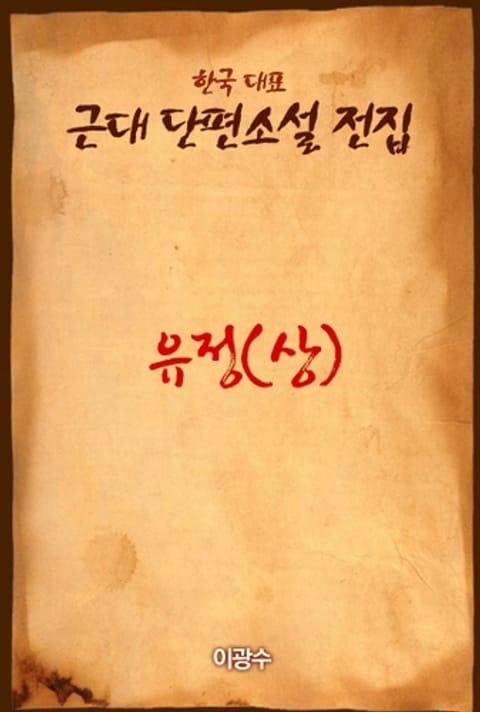 한국 대표
근대 단편소설 전집
유정(상)
이광수